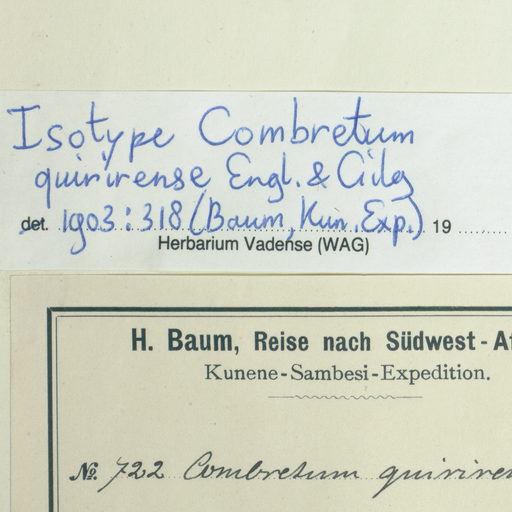 Isotype Combretum
quirirense Engl. & Gilg
det. 1903:318 (Baum, Kun. Exp.) 19
Herbarium Vadense (WAG)
H. Baum, Reise nach Südwest-Af
Kunene-Sambesi-Expedition.
No. 722 Combretum quiriren